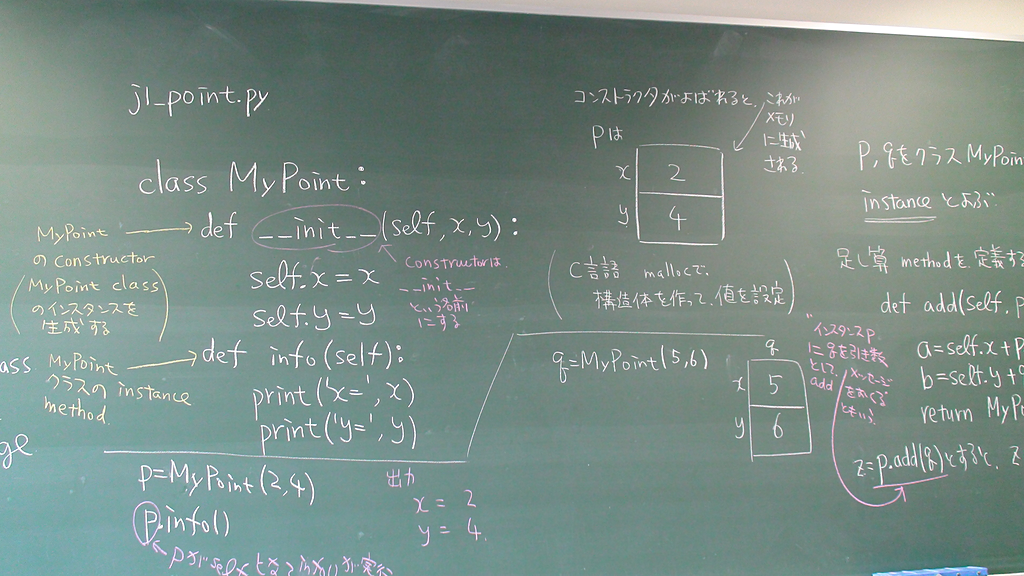 j1_point.py
class MyPoint:
MyPoint
の Constructor
(MyPoint class
のインスタンスを
生成する)
def __init__(self, x, y):
Constructorは
__init__
という名前
にする
self.x = x
self.y = y
ass
MyPoint
クラスの instance
method.
def info(self):
print('x=', x)
print('y=', y)
ge
p=MyPoint(2,4)
p.info()
pがselfとなる
出力
x = 2
y = 4.
コンストラクタがよばれると、
これが
メモリ
に生成
される.
pは
x 2
y 4
(C言語 mallocで.
構造体を作って、値を設定)
q=MyPoint(5,6)
q
x 5
y 6
"インスタンスp.
にqを引き数
として、
add
メッセージ
をおくる
ともいふ.
p, qをクラス MyPoin
instance とよぶ
足し算 methodを定義する
def add(self, p
a=self.x+p
b=self.y+
return MyPo
z=p.add(q)とすると、z